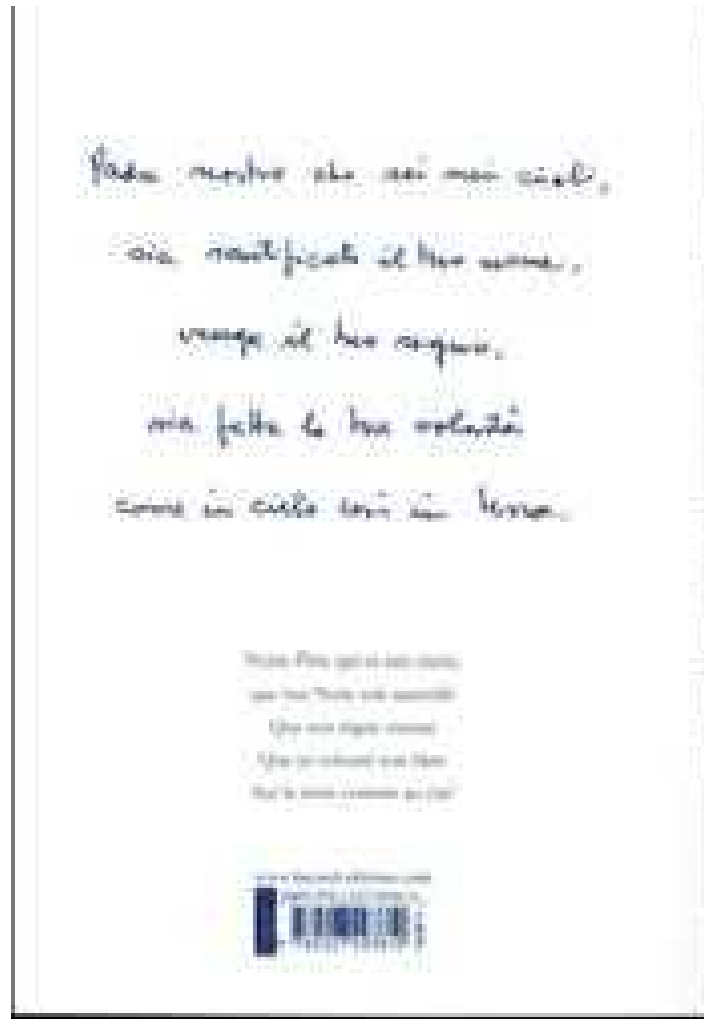 Padre nostro che sei nei cieli,
sia santificato il tuo nome,
venga il tuo regno,
sia fatta la tua volontà
come in cielo così in terra.
Notre Père qui es aux cieux,
que ton Nom soit sanctifié
Que ton règne vienne
Que ta volonté soit faite
Sur la terre comme au ciel